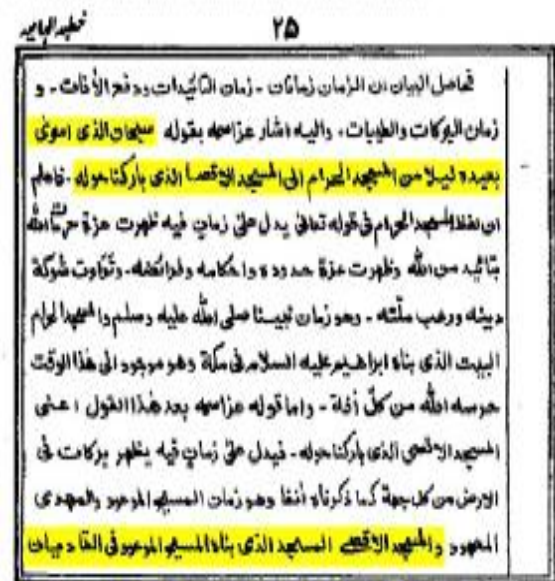 ۲۵
خطبه الهاميه
فحاصل البيان ان الزمان زمانان - زمان التائيدات ودفع الأفات - و
زمان البركات والطيبات - واليه اشار عزاسمه بقوله سبحان الذى اسرىٰ
بعبده ليلا من المسجد الحرام الى المسجد الاقصا الذى باركنا حوله - فاعلم
ان لفظ المسجد الحرام فى قوله تعالىٰ يدل علىٰ زمان فيه ظهرت عزة حرمات الله
بتائيد من الله وظهرت عزة حدوده واحكامه وفرائضه - وتراءت شوكة
دينه ورعب ملّته - وهو زمان نبينا صلى الله عليه وسلم والمسجد الحرام
البيت الذى بناه ابراهيم عليه السلام فى مكّة وهو موجود الى هٰذا الوقت
حرسه الله من كلّ أفة - واما قوله عزاسمه بعد هٰذا القول اعنى
المسجد الاقصى الذى باركنا حوله - فيدل علىٰ زمان فيه يظهر بركات فى
الارض من كل جهة كما ذكرناه أنفا وهو زمان المسيح الموعود والمهدى
المعهود والمسجد الاقصٰے المسجد الذى بناه المسيح الموعود فى القاديان